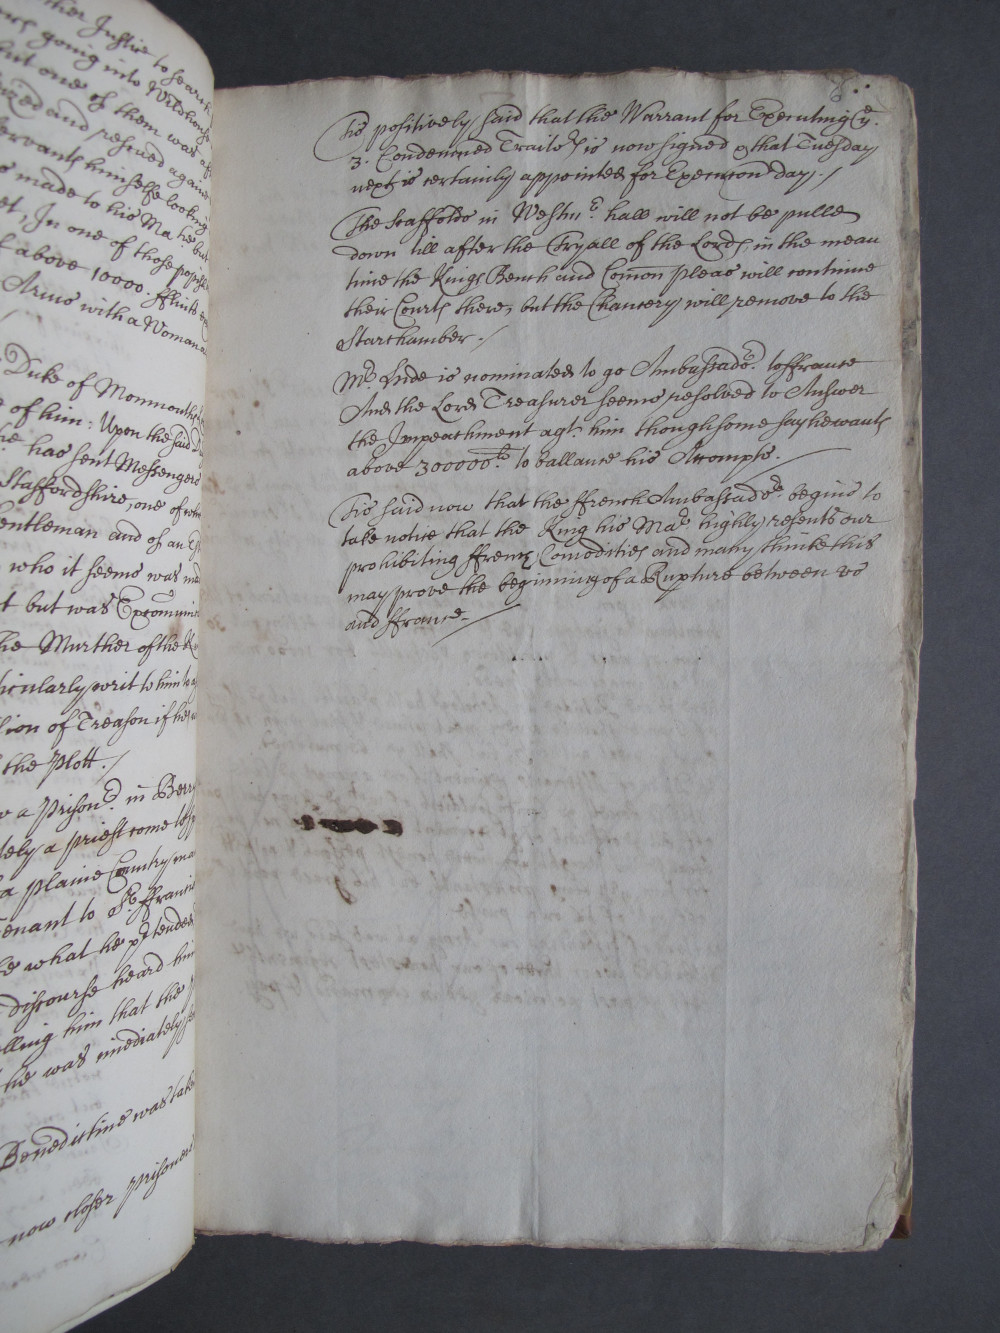 ther Justice to search
going into Wildhouse
but one of them was
ized and rescued again
servants himselfe looking
made to his Ma:tie but
et, In one of those
above 10000 fflints
Armes with a Woman
Duke of Monmouth
of him: Upon the said
has sent Messengers
Staffordshire, one of
Gentleman and of an
who it seems was
t but was Excomuni
he Murther of the
ticularly writ to him
sion of Treason if he
the Plott./
a Prison:r in
tely a priest come
a plaine Country
enant to S:r ffrancis
what he p'tended
discourse heard him
elling him that the
he was imediately
Benedictine was take
now closer prisoner
Tis positively said that the Warrant for Executing ye.
3. Condemned Traitors is now signed & that Tuesday
next is certainly appointed for Execucon day./
The Scaffolds in Westmr. hall will not be pulled
down till after the Tryall of the Lords in the mean
time the Kings Bench and Comon pleas will continue
their Courts there, but the Chancery will remove to the
Starchamber./
Mr. Hide is nominated to go Ambassadr. to ffrance
And the Lord Treasurer seems resolved to Answer
the Impeachment agt. him though some say he wants
above 300000li. to ballance his Accompts.
Tis said now that the ffrench Ambassadr. begins to
take notice that the King his Mar. highly resents our
prohibiting ffrench Comodities and many thinke this
may prove the beginning of a Rupture between us
and ffrance./